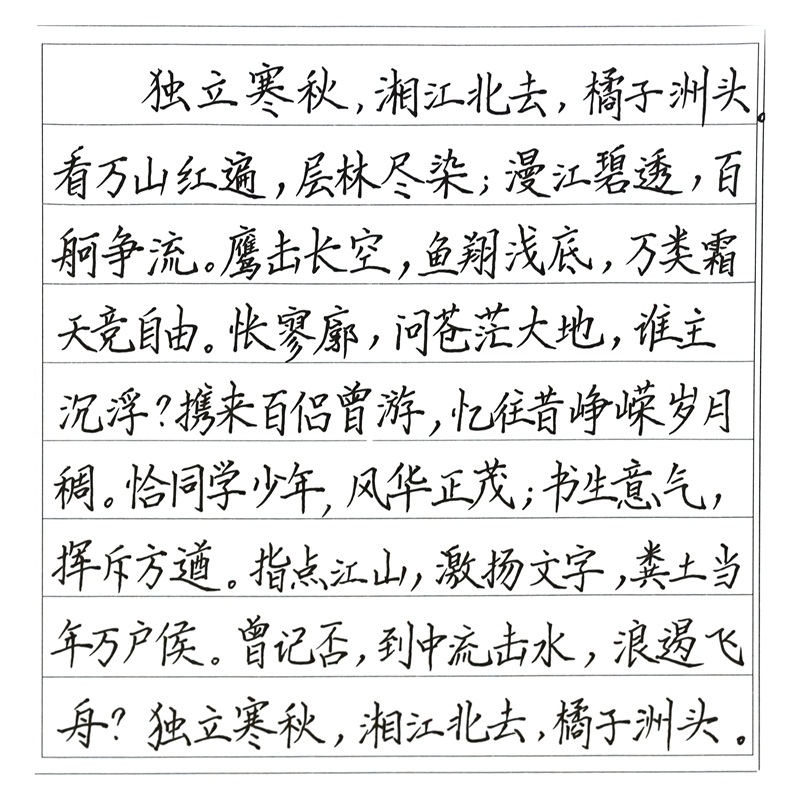 独立寒秋，湘江北去，橘子洲头。
看万山红遍，层林尽染；漫江碧透，百
舸争流。鹰击长空，鱼翔浅底，万类霜
天竞自由。怅寥廓，问苍茫大地，谁主
沉浮？携来百侣曾游，忆往昔峥嵘岁月
稠。恰同学少年，风华正茂；书生意气，
挥斥方遒。指点江山，激扬文字，粪土当
年万户侯。曾记否，到中流击水，浪遏飞
舟？独立寒秋，湘江北去，橘子洲头。